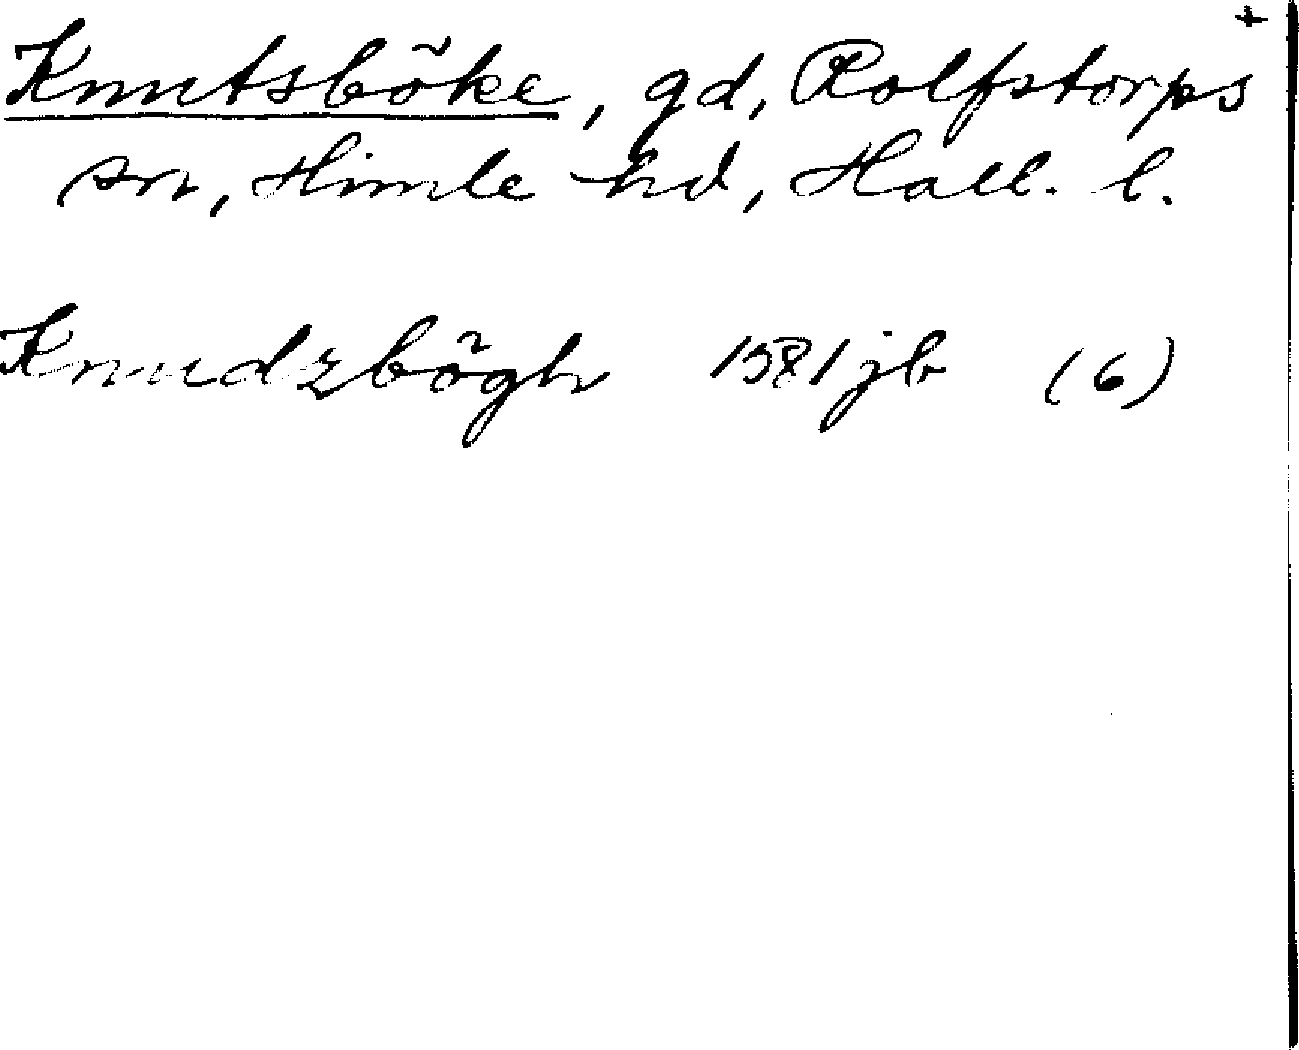 +
Knutsböke, gd, Rolfstorps
sn, Himle hd, Hall. l.
Knudzbögh 1581 jb (6)